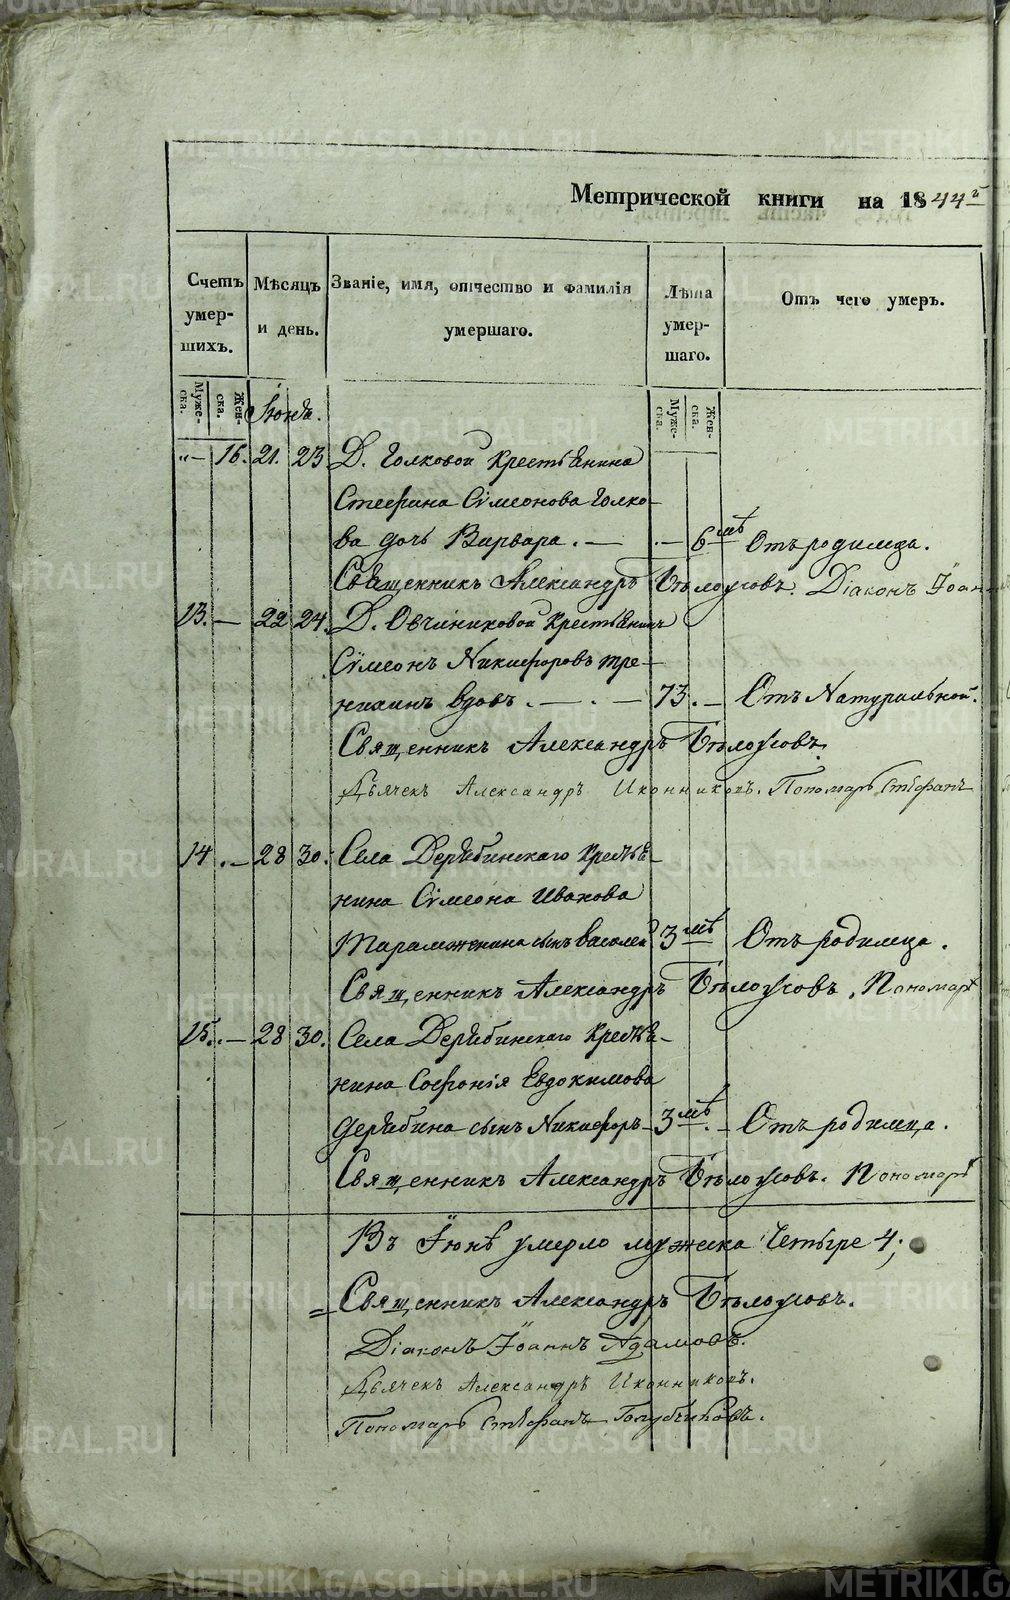 Метрической книги на 1844й
Счетъ умершихъ.
Мѣсяцъ и день.
Званіе, имя, отчество и фамилія умершаго.
Лѣта умершаго.
Отъ чего умеръ.
Мужеска. Женска. Іюнь. Мужеска. Женска.
"— 16. 21. 23 Д. Голковой крестьянина
Стефана Сѵмеонова Голко-
ва дочь Варвара. — .— 6 мѣ Отъ родимца.
Священникъ Александръ Бѣлоусовъ. Діаконъ Іоан
13. — 22 24. Д. Овчинниковой крестьянинъ
Сѵмеонъ Никифоровъ
вдовъ. — . — 73. — Отъ Натуральной.
Священникъ Александръ Бѣлоусовъ.
Дьячекъ Александръ Иконниковъ. Пономарь Стефанъ
14 . — 28 30. Села Дерябинскаго кресть-
нина Сѵмеона Иванова
сынъ Василей 3 мѣ Отъ родимца.
Священникъ Александръ Бѣлоусовъ. Пономарь
15. . — 28 30. Села Дерябинскаго кресть-
нина Софронія Евдокимова
Дерябина сынъ Никифоръ — 3 мѣ . — Отъ родимца.
Священникъ Александръ Бѣлоусовъ. Пономарь
Въ Іюнѣ умерло мужеска Четыре 4;
= Священникъ Александръ Бѣлоусовъ.
Діаконъ Іоаннъ Адамовъ.
Дьячекъ Александръ Иконниковъ.
Пономарь Стефанъ Голубчиковъ.
METRIKI.GASO-URAL.RU